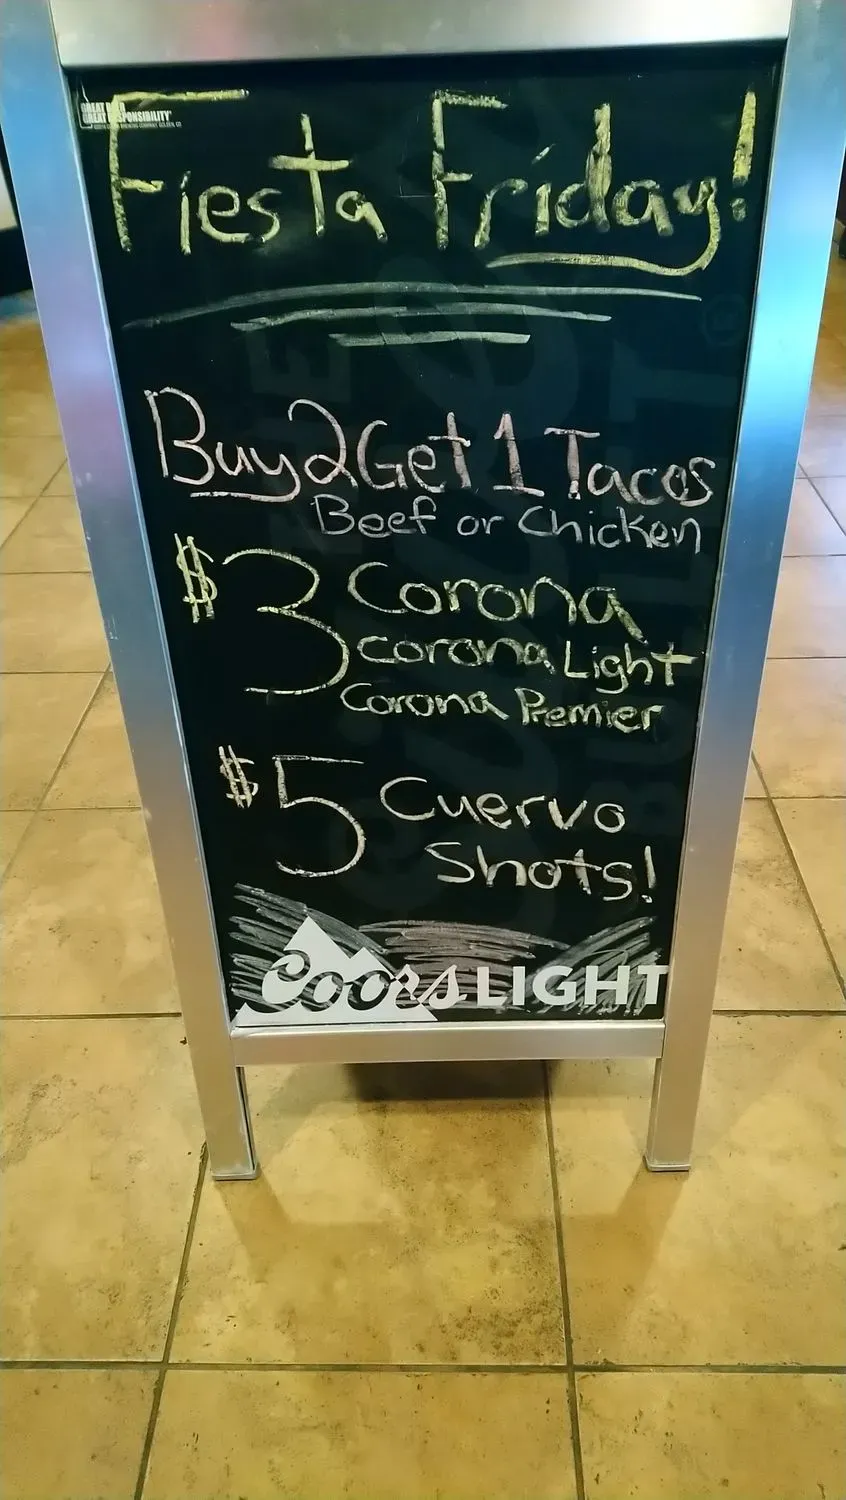 GREAT BEER
GREAT RESPONSIBILITY®
Fiesta Friday!
Buy 2 Get 1 Tacos
Beef or Chicken
$3 Corona
Corona Light
Corona Premier
$5 Cuervo
Shots!
Coors LIGHT